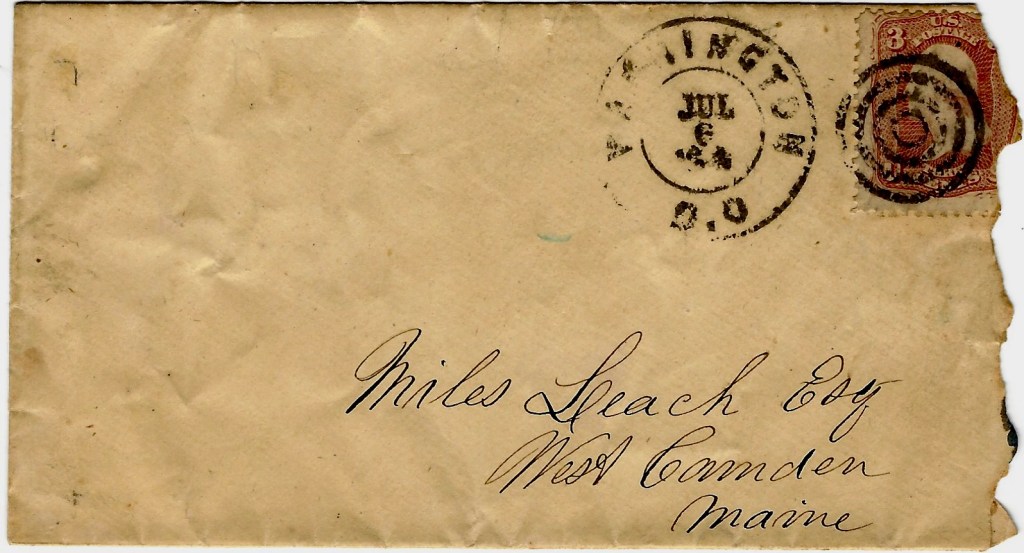 U.S.
3
WASHINGTON
JUL
6
D.C
Miles Leach Esq
West Camden
Maine